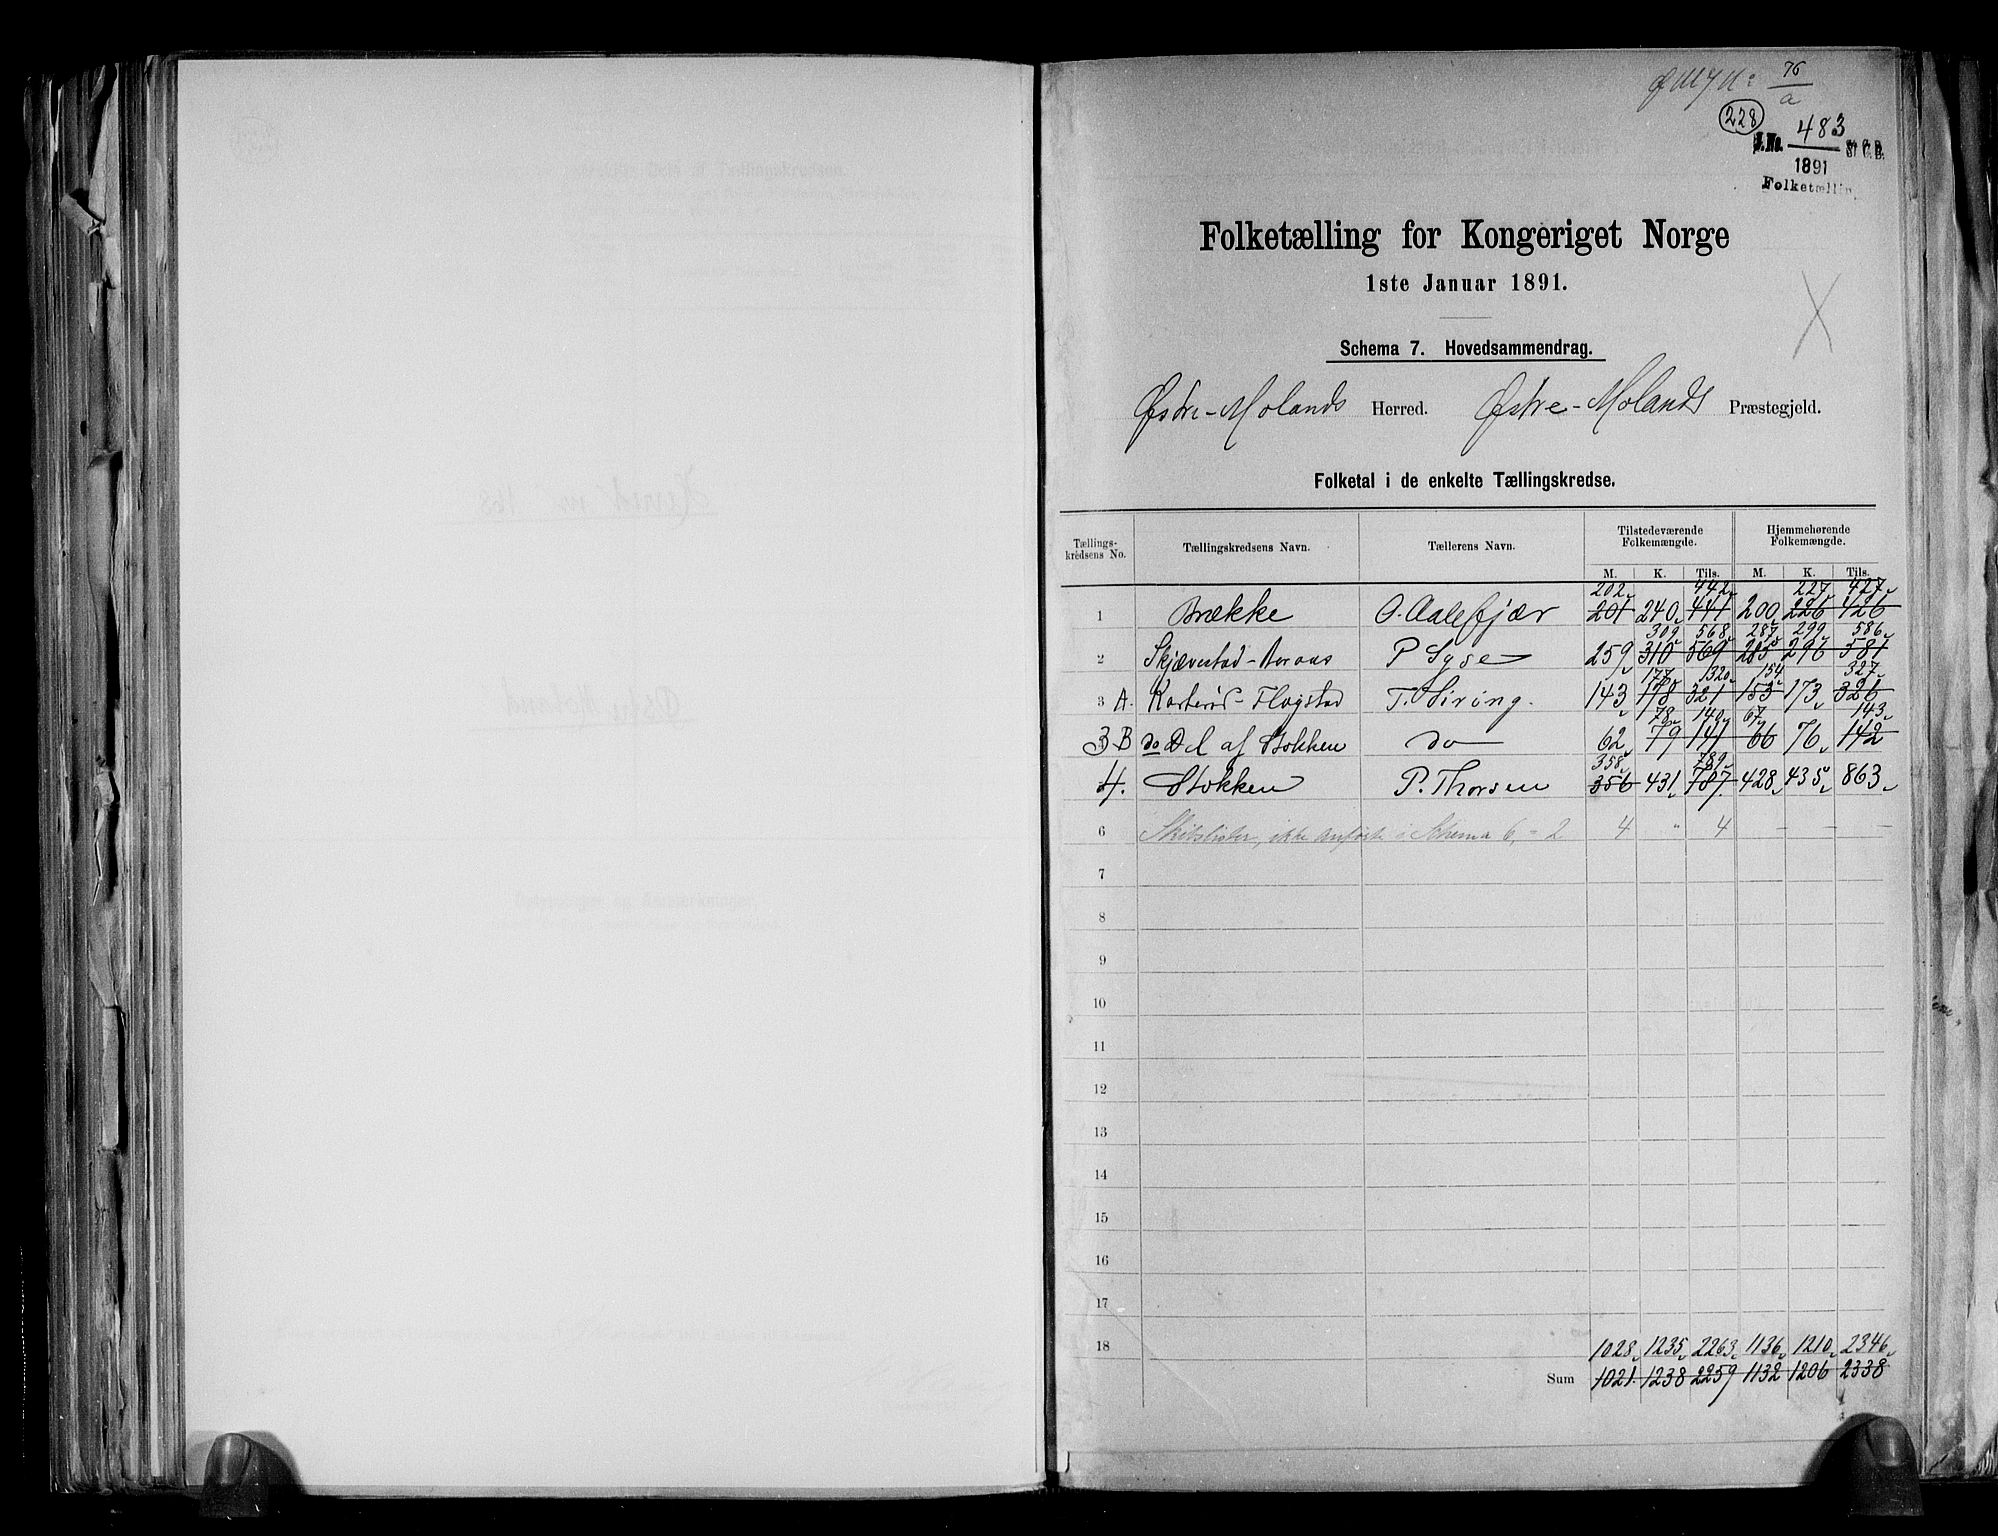 76
a
228
J. No. 483 St. C. B.
1891
Folketællin
Folketælling for Kongeriget Norge
1ste Januar 1891.
Schema 7. Hovedsammendrag.
Østre-Molands Herred. Østre-Molands Præstegjeld.
Folketal i de enkelte Tællingskredse.
Tællings-kredsens No. Tællingskredsens Navn. Tællerens Navn. Tilstedeværende Folkemængde. Hjemmehørende Folkemængde.
M. K. Tils. M. K. Tils.
202 442 227 427
1 Brække O. Aalefjær 201 240 441 200 226 426
309 568 287 299 586
2 Skjævestad- P Syse 259 310 569 285 296 581
177 320 154 327
3 A. Flagstad T. Siring. 143 178 321 153 173 326
78 140 67 143
3 B do Del af Stokken do 62 79 141 66 76 142
358 789
4. Stokken P. Thorsen 356 431 787 428 435 863
6 Skibslister, ikke anførte i Schema 6, = 2 4 " 4 – – –
7
8
9
10
11
12
13
14
15
16
17
18 1028 1235 2263 1136 1210 2346
Sum 1021 1238 2259 1132 1206 2338